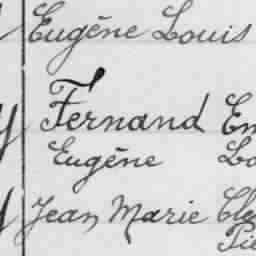 Eugène Louis
Fernand
Eugène
Jean Marie